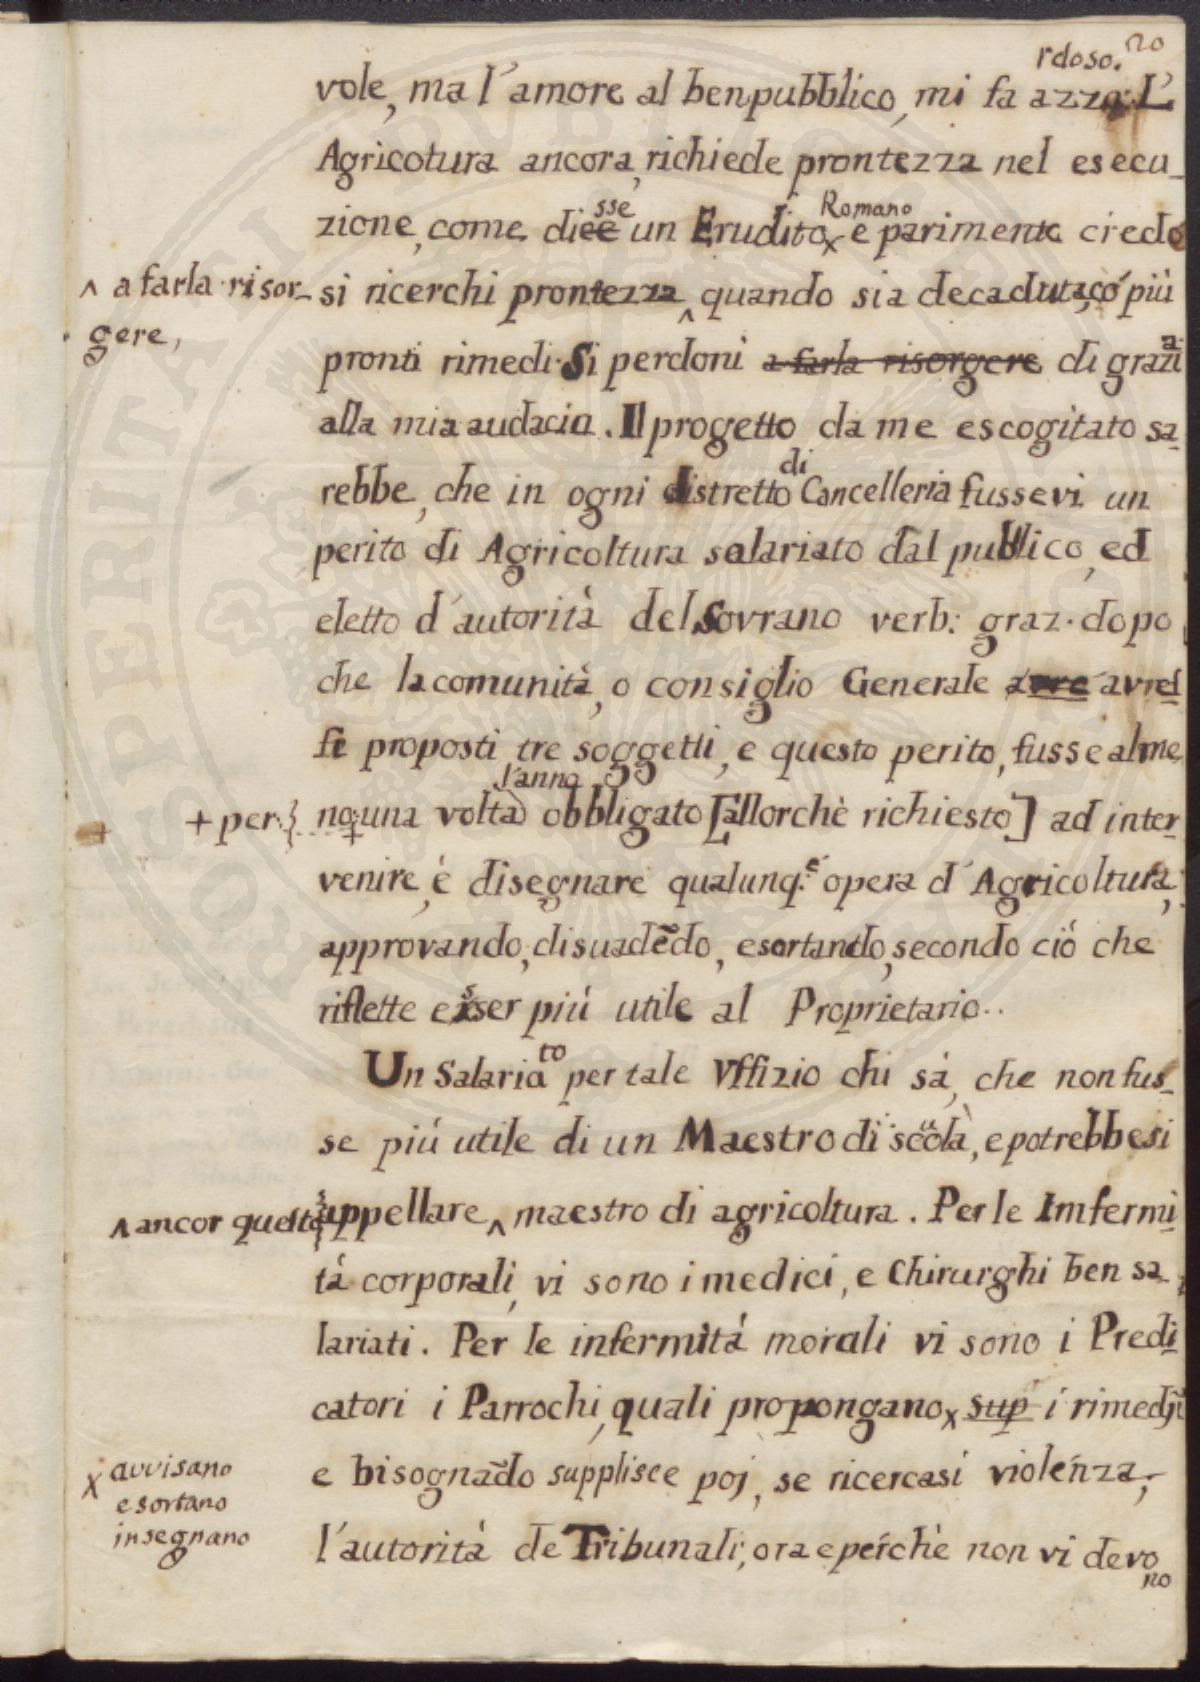 20
rdoso.
vole, ma l'amore al ben pubblico, mi fa azza. L'
Agricotura ancora, richiede prontezza nel esecu_
sse Romano
zione, come dicee un Erudito x e parimente credo
^ a farla risor_ si ricerchi prontezza ^ quando sia decaduta, có più
gere,
a
pronti rimedi. Si perdoni a farla risorgere di grazi
alla mia audacia. Il progetto da me escogitato sa_
di
rebbe, che in ogni distretto Cancelleria fussevi un
perito di Agricoltura salariato dal publico, ed
eletto d'autorità del Sovrano verb: graz. dopo
che la comunità, o consiglio Generale avre avres
se proposti tre soggetti, e questo perito, fusse alme
l'anno
+ per } no + una volta obbligato [allorchè richiesto] ad inter_
venire, è disegnare qualunq.e opera d'Agricoltura,
approvando, disuadēdo, esortando, secondo ciò che
s
riflette esser piú utile al Proprietario..
to
Un Salaria per tale Uffizio chi sà, che non fus_
u
se piú utile di un Maestro di scola, e potrebbesi
^ ancor questa appellare ^ maestro di agricoltura. Per le Imfermi_
tà corporali, vi sono i medici, e Chirurghi ben sa_
lariati. Per le infermità morali vi sono i Predi_
catori i Parrochi, quali propongano x sup i rimedj
x avvisano
esortano
insegnano
e bisognādo supplisce poj, se ricercasi violenza,
l'autorità de Tribunali; ora e perchè non vi devo
no